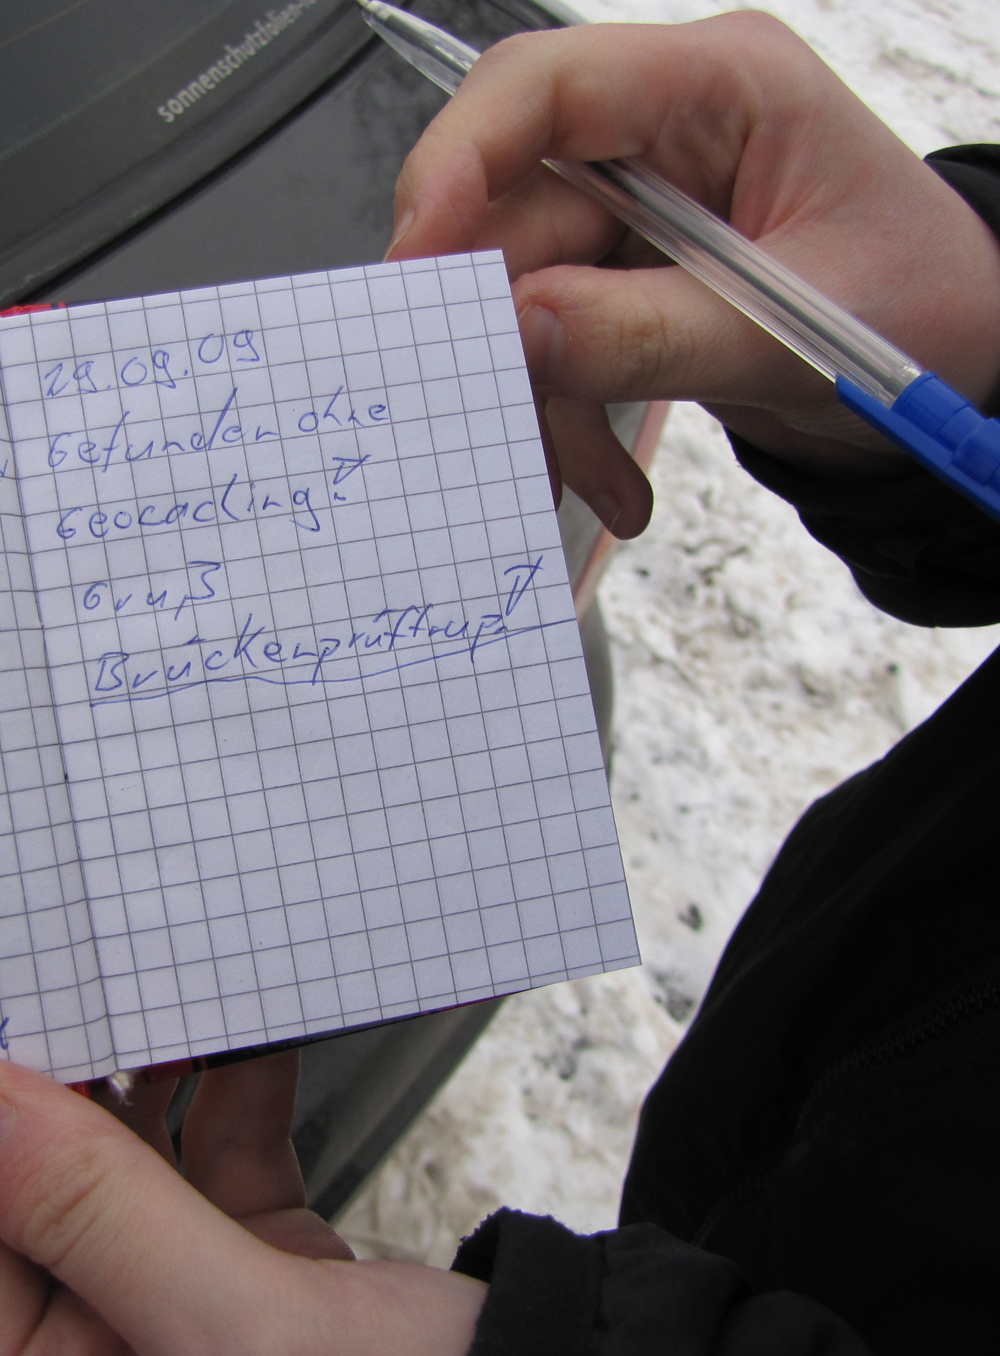 sonnenschutzfolien-
29.09.09
Gefunden ohne
Geocaching!
Gruß
Brückenprüftrup!